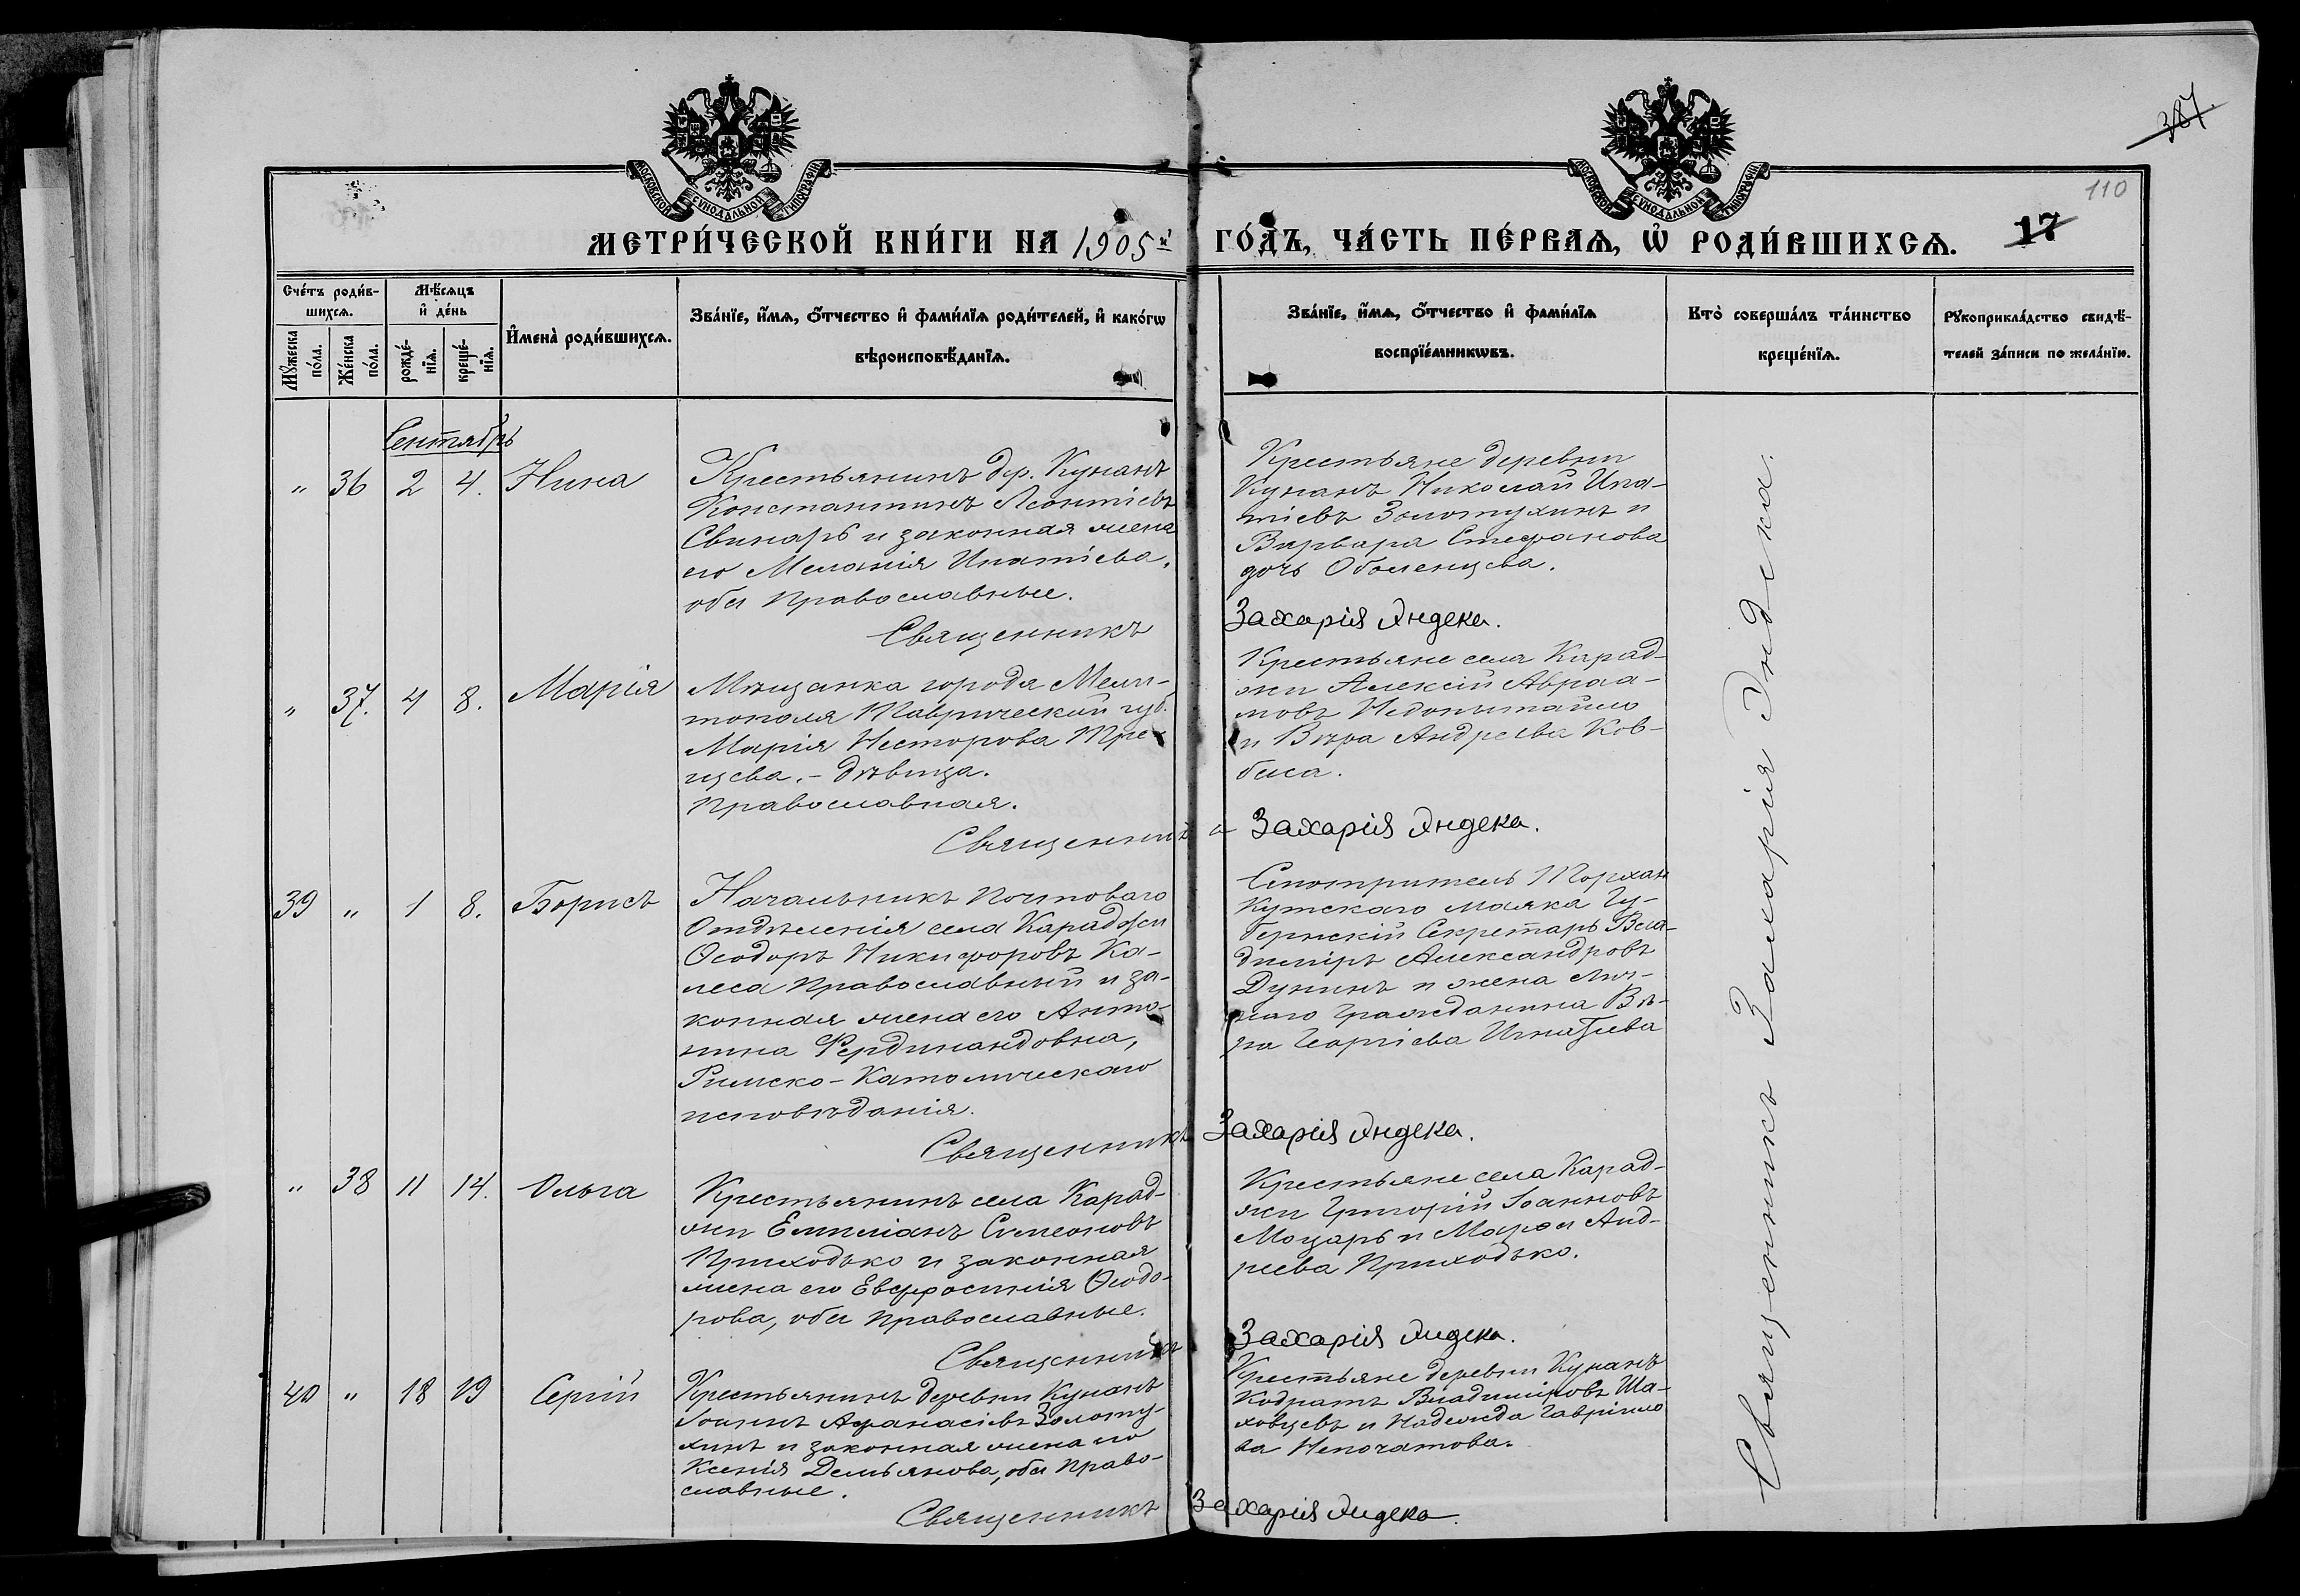 387
110
МОСКОВСКОЙ СѴНОДАЛЬНОЙ ТИПОГРАФІИ
МОСКОВСКОЙ СѴНОДАЛЬНОЙ ТИПОГРАФІИ
МЕТРИ́ЧЕСКОЙ КНИ́ГИ НА 1905й ГО́ДЪ, ЧА́СТЬ ПЕ́РВАѦ, Ѽ РОДИ́ВШИХСѦ.
17
Сче́тъ роди́в-
шихсѧ.
Мꙋ́жеска
по́ла.
Же́нска
по́ла.
Мѣ́сѧцъ
и҆ де́нь
рожде́-
нїѧ.
креще́-
нїѧ.
И҆мена̀ роди́вшихсѧ.
Зва́нїе, и҆́мѧ, ѻ҆́тчество и҆ фами́лїѧ роди́телей, и҆ како́гѡ
вѣроисповѣ́данїѧ.
Зва́нїе, и҆́мѧ, ѻ҆́тчество и҆ фами́лїѧ
воспрїе́мникѡвъ.
Кто̀ соверша́лъ та́инство
креще́нїѧ.
Рꙋкоприкла́дство свидѣ́-
телей за́писи по жела́нїю.
Сентябрь
" 36 2 4. Нина
Крестьянинъ дер. Кунанъ
Константинъ Леонтіевъ
Свинарь и законная жена
его Меланія Ипатіева,
оба православные.
Священникъ
Крестьяне деревни
Кунанъ Николай Ипа-
тіевъ Золотухинъ и
Варвара Стефанова
дочь Оболенцева.
Захарія Яндека.
" 37. 4 8. Марія
Мѣщанка города Мели-
тополя Таврической губ.
Марія Несторова Тре-
щева. - дѣвица.
Православная.
Священникъ
Крестьяне села Карад-
жи Алексій Авраа-
мовъ Недопытайло
и Вѣра Андреева Ков-
баса.
Захарія Яндека.
39 " 1 8. Борисъ
Начальникъ Почтоваго
Отдѣленія села Караджи
Ѳеодоръ Никифоровъ Ка-
леса православный и за-
конная жена его Анто-
нина Фердинандовна,
Римско-Католическаго
исповѣданія.
Священникъ
Смотритель Тархан
Кутскаго маяка Гу-
бернскій Секретарь Вла-
диміръ Александровъ
Дунинъ и жена лич-
наго гражданина Вѣ-
ра Георгіева Игнатьева
Захарія Яндека.
" 38 11 14. Ольга
Крестьянинъ села Карад-
жи Емиліанъ Симеоновъ
Приходько и законная
жена его Евфросинія Ѳеодо-
рова, оба православные.
Священникъ
Крестьяне села Карад-
жи Григорій Іоанновъ
Моцарь и Марѳа Анд-
реева Приходько.
Захарія Яндека.
40 " 18 19 Сергій
Крестьянинъ деревни Кунанъ
Іоаннъ Афанасіевъ Золоту-
хинъ и законная жена его
Ксенія Демьянова, оба право-
славные.
Священникъ
Крестьяне деревни Кунанъ
Кодратъ Владиміровъ Ша-
ховцевъ и Надежда Гавріило
ва Непочатова.
Захарія Яндека
Священникъ Захарія Яндека.